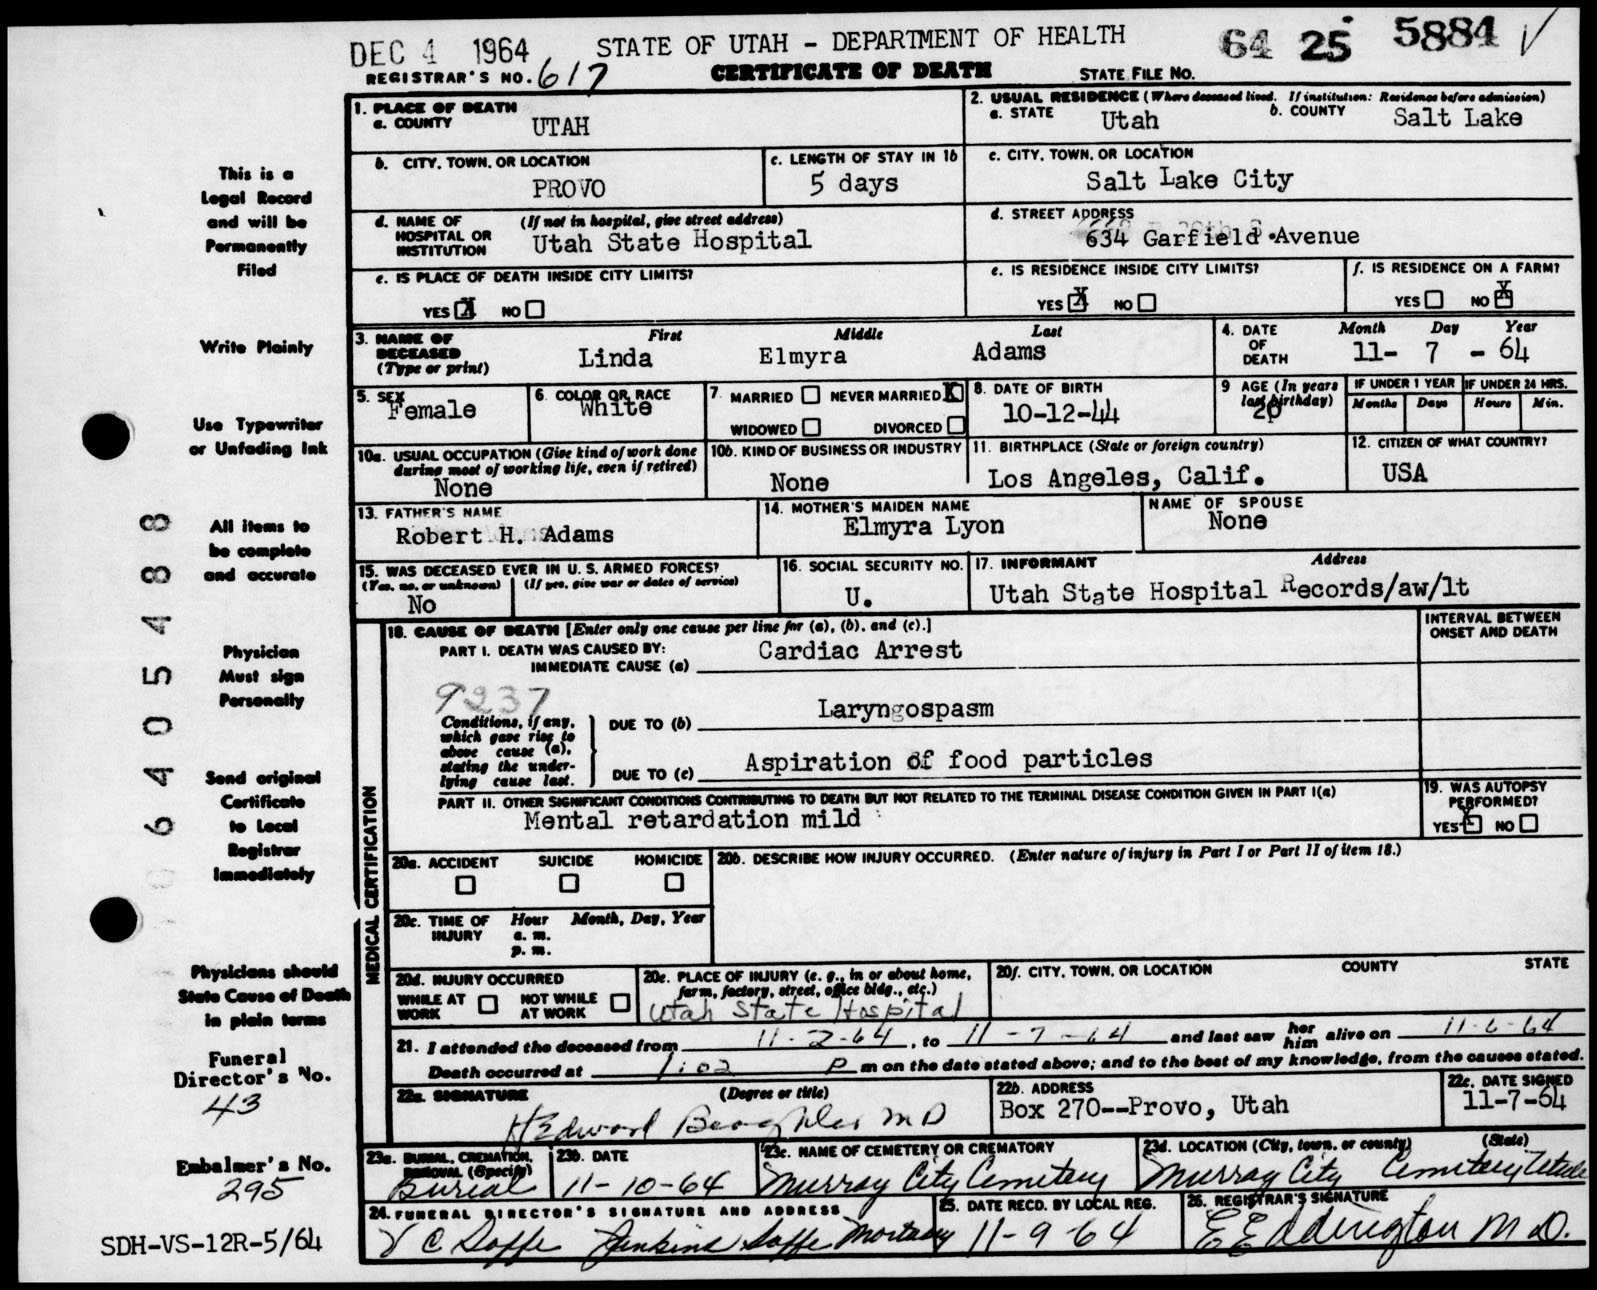 DEC 4 1964 STATE OF UTAH - DEPARTMENT OF HEALTH 64 25 5884
REGISTRAR'S NO. 617 CERTIFICATE OF DEATH STATE FILE NO.
1. PLACE OF DEATH
a. COUNTY UTAH
2. USUAL RESIDENCE (Where deceased lived. If institution: Residence before admission)
a. STATE Utah b. COUNTY Salt Lake
b. CITY, TOWN, OR LOCATION PROVO
c. LENGTH OF STAY IN 1b 5 days
c. CITY, TOWN, OR LOCATION Salt Lake City
d. NAME OF HOSPITAL OR INSTITUTION (If not in hospital, give street address) Utah State Hospital
d. STREET ADDRESS 634 Garfield Avenue
e. IS PLACE OF DEATH INSIDE CITY LIMITS?
YES X NO
e. IS RESIDENCE INSIDE CITY LIMITS?
YES X NO
f. IS RESIDENCE ON A FARM?
YES NO X
3. NAME OF DECEASED (Type or print) First Middle Last
Linda Elmyra Adams
4. DATE OF DEATH Month Day Year
11- 7 - 64
5. SEX Female
6. COLOR OR RACE White
7. MARRIED NEVER MARRIED X
WIDOWED DIVORCED
8. DATE OF BIRTH 10-12-44
9 AGE (In years last birthday) 20
IF UNDER 1 YEAR Months Days
IF UNDER 24 HRS. Hours Min.
10a. USUAL OCCUPATION (Give kind of work done during most of working life, even if retired) None
10b. KIND OF BUSINESS OR INDUSTRY None
11. BIRTHPLACE (State or foreign country) Los Angeles, Calif.
12. CITIZEN OF WHAT COUNTRY? USA
13. FATHER'S NAME Robert H. Adams
14. MOTHER'S MAIDEN NAME Elmyra Lyon
NAME OF SPOUSE None
15. WAS DECEASED EVER IN U. S. ARMED FORCES?
(Yes, no, or unknown) (If yes, give war or dates of service)
No
16. SOCIAL SECURITY NO. U.
17. INFORMANT Address
Utah State Hospital Records/aw/lt
MEDICAL CERTIFICATION
18. CAUSE OF DEATH [Enter only one cause per line for (a), (b), and (c).]
INTERVAL BETWEEN ONSET AND DEATH
PART I. DEATH WAS CAUSED BY:
IMMEDIATE CAUSE (a) Cardiac Arrest
9237
Conditions, if any, which gave rise to above cause (a), stating the underlying cause last.
DUE TO (b) Laryngospasm
DUE TO (c) Aspiration of food particles
PART II. OTHER SIGNIFICANT CONDITIONS CONTRIBUTING TO DEATH BUT NOT RELATED TO THE TERMINAL DISEASE CONDITION GIVEN IN PART I(a)
Mental retardation mild
19. WAS AUTOPSY PERFORMED?
YES X NO
20a. ACCIDENT SUICIDE HOMICIDE
20b. DESCRIBE HOW INJURY OCCURRED. (Enter nature of injury in Part I or Part II of item 18.)
20c. TIME OF INJURY Hour Month, Day, Year
a. m.
p. m.
20d. INJURY OCCURRED
WHILE AT WORK NOT WHILE AT WORK
20e. PLACE OF INJURY (e. g., in or about home, farm, factory, street, office bldg., etc.)
Utah State Hospital
20f. CITY, TOWN, OR LOCATION COUNTY STATE
21. I attended the deceased from 11-2-64, to 11-7-64 and last saw her him alive on 11-6-64
Death occurred at 1:02 P m on the date stated above; and to the best of my knowledge, from the causes stated.
22a. SIGNATURE (Degree or title)
H Edward Beaghler M D
22b. ADDRESS Box 270--Provo, Utah
22c. DATE SIGNED 11-7-64
23a. BURIAL, CREMATION, REMOVAL (Specify) Burial
23b. DATE 11-10-64
23c. NAME OF CEMETERY OR CREMATORY Murray City Cemetery
23d. LOCATION (City, town, or county) (State)
Murray City Cemetery Utah
24. FUNERAL DIRECTOR'S SIGNATURE AND ADDRESS
V C Soffe Jenkins Soffe Mortuary
25. DATE RECD. BY LOCAL REG. 11-9-64
26. REGISTRAR'S SIGNATURE E E Eddington M D.
This is a
Legal Record
and will be
Permanently
Filed
Write Plainly
Use Typewriter
or Unfading Ink
All items to
be complete
and accurate
Physician
Must sign
Personally
Send original
Certificate
to Local
Registrar
Immediately
Physicians should
State Cause of Death
in plain terms
Funeral
Director's No.
43
Embalmer's No.
295
SDH-VS-12R-5/64
06405488